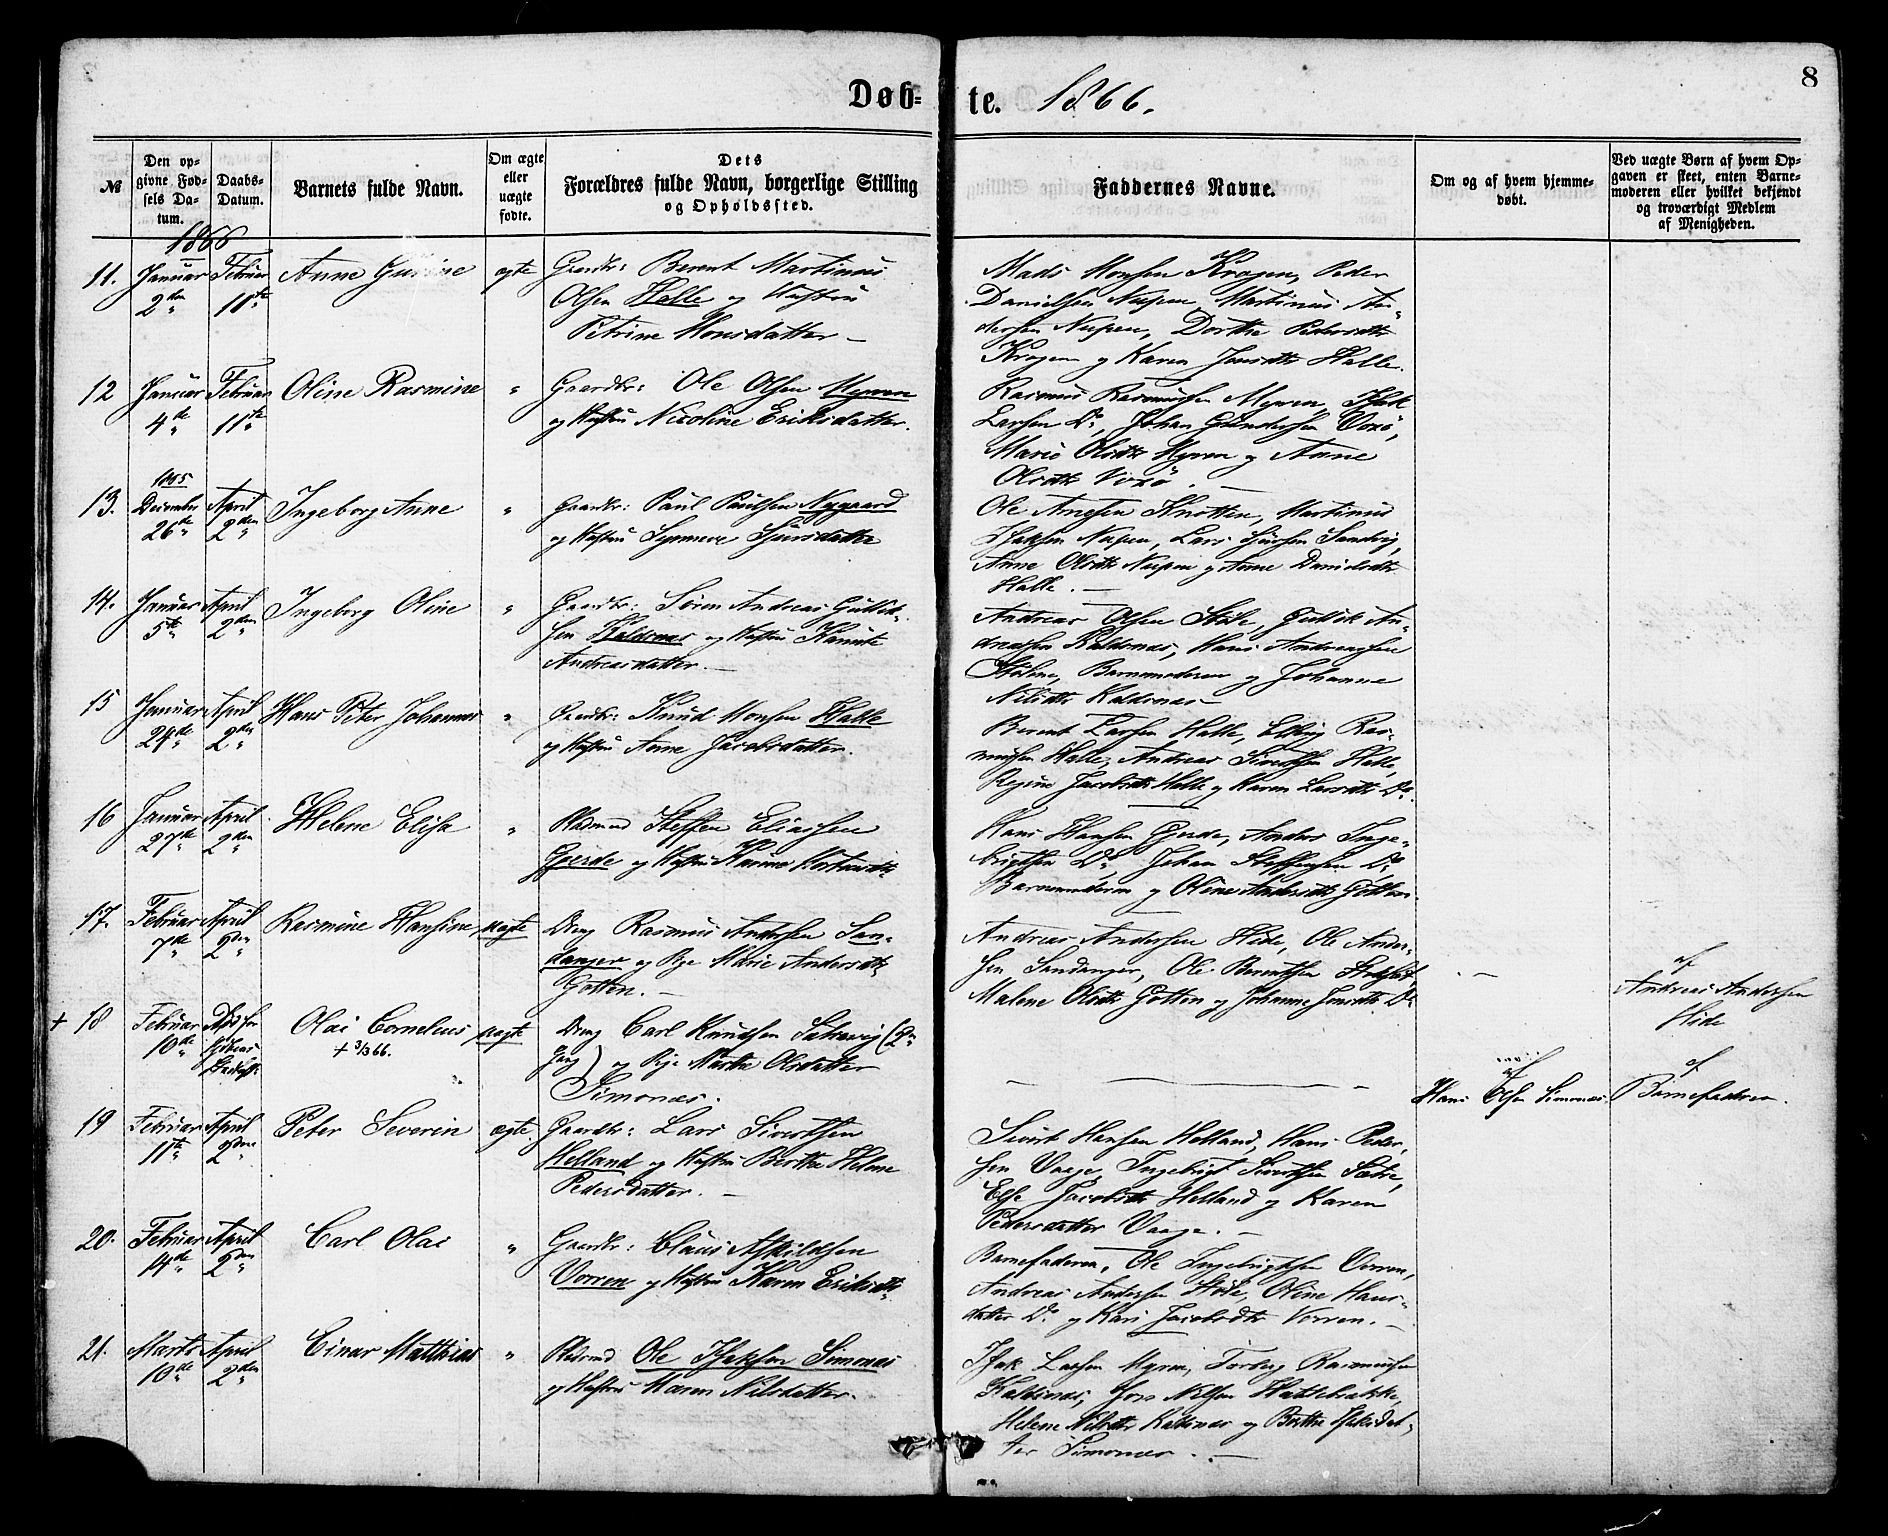 8
Døb-
te. 1866.
№
Den op-
givne Fød-
sels Da-
tum.
Daabs-
Datum.
Barnets fulde Navn.
Om ægte
eller
uægte
fødte.
Dets
Forældres fulde Navn, borgerlige Stilling
og Opholdssted.
Faddernes Navne.
Om og af hvem hjemme-
døbt.
Ved uægte Børn af hvem Op-
gaven er skeet, enten Barne-
moderen eller hvilket bekjendt
og troværdigt Medlem
af Menigheden.
1866
11. Januar 2den
Februar 11te
Anne Gurine
ægte
Gaardbr: Berent Martinus
Olsen Halle og Hustru
Petrine Monsdatter –
Mads Monsen Krogen, Peder
Danielsen Nupen, Martinus An-
dersen Nupen, Dorthe Pedersdtr
Krogen og Karen Jonsdtr Halle.
12 Januar 4de
Februar 11te
Oline Rasmine
"
Gaardbr: Ole Olsen Myren
og Hustru Nicoline Eriksdatter.
Rasmus Rasmussen Myren, Isak
Larsen Do, Johan Gundersen
Marie Olsdtr Myren og Anne
Olsdtr
1865
13. December 26de
April 2den
Ingeborg Anne
"
Gaardbr: Paul Paulsen Nygaard
og Hustru Synneve Sjursdatter
Ole Arnesen Knotten, Martinus
Isaksen Nupen, Lars Sjursen Sandvig,
Anne Olsdtr Nupen og Anne Danielsdtr
Halle. –
14. Januar 5te
April 2den
Ingeborg Oline
"
Gaardbr: Søren Andreas Gullik-
sen Kaldsnæs og Hustru
Andreasdatter. –
Andreas Olsen Hide, Gullik An-
dreassen Kaldsnæs, Hans Andreassen
Barnemoderen og Johanne
Nilsdtr Kaldsnæs –
15 Januar 24de
April 2den
Hans Peter Johannes
"
Gaardbr: Knud Monsen Halle
og Hustru Anne Jacobsdatter.
Berent Larsen Halle, Elling Ras-
mussen Halle, Andreas Sivertsen Halle,
Regine Jacobsdtr Halle og Karen Larsdtr Do.
16 Januar 27de
April 2den
Helene Elisa
"
Pladsmd Steffen Eliassen
Gjerde og Hustru Karine
Hans Hansen Gjerde, Anders Inge-
brigtsen Do, Johan Steffensen Do
Barnemoderen og Oline Andersdtr Gotten.
17. Februar 7de
April 2den
Rasmine Hansine
uægte
Dreng Rasmus Andersen San-
danger og Pige Marie Andersdtr
Gotten. –
Andreas Andersen Hide, Ole Ander-
sen Sandanger, Ole Berentsen
Malene Olsdtr Gotten og Johanne Jonsdtr Do
–
af
Andreas Andersen
Hide
+ 18 Februar 10de
Død før
Olai Cornelius
+ 3/3 66.
uægte
Dreng Carl Knudsen
og Pige Marthe Olsdatter
Simonæs.
af
Hans Olsen Simonæs.
af
Barnefaderen.
19 Februar 11te
April 2den
Peter Severin
ægte.
Gaardbr: Lars Sivertsen
Helland og Hustru Berthe Helene
Pedersdatter. –
Sivert Hansen Helland, Hans Peder-
sen Vaage, Ingebrigt Sivertsen Sætre,
Else Jacobsdtr Helland og Karen
Pedersdatter Vaage. –
20. Februar 14de
April 2den
Carl Olai
"
Gaardbr: Claus Askildsen
Vorren og Hustru Karen Eriksdtr
Barnefaderen, Ole Ingebrigtsen Vorren,
Andreas Andersen Hide, Oline Hans-
datter Do og Kari Jacobsdtr Vorren. –
21. Marts 10de
April 2den
Einar Matthias
"
Pladsmd Ole Isaksen Simonæs
og Hustru Maren Nilsdatter.
Isak Larsen Myren, Torberg Rasmussen
Kaldsnæs, Nilsen Hattebakke,
Helene Nilsdtr Kaldsnæs og Berthe Isaksdat-
ter Simonæs. –